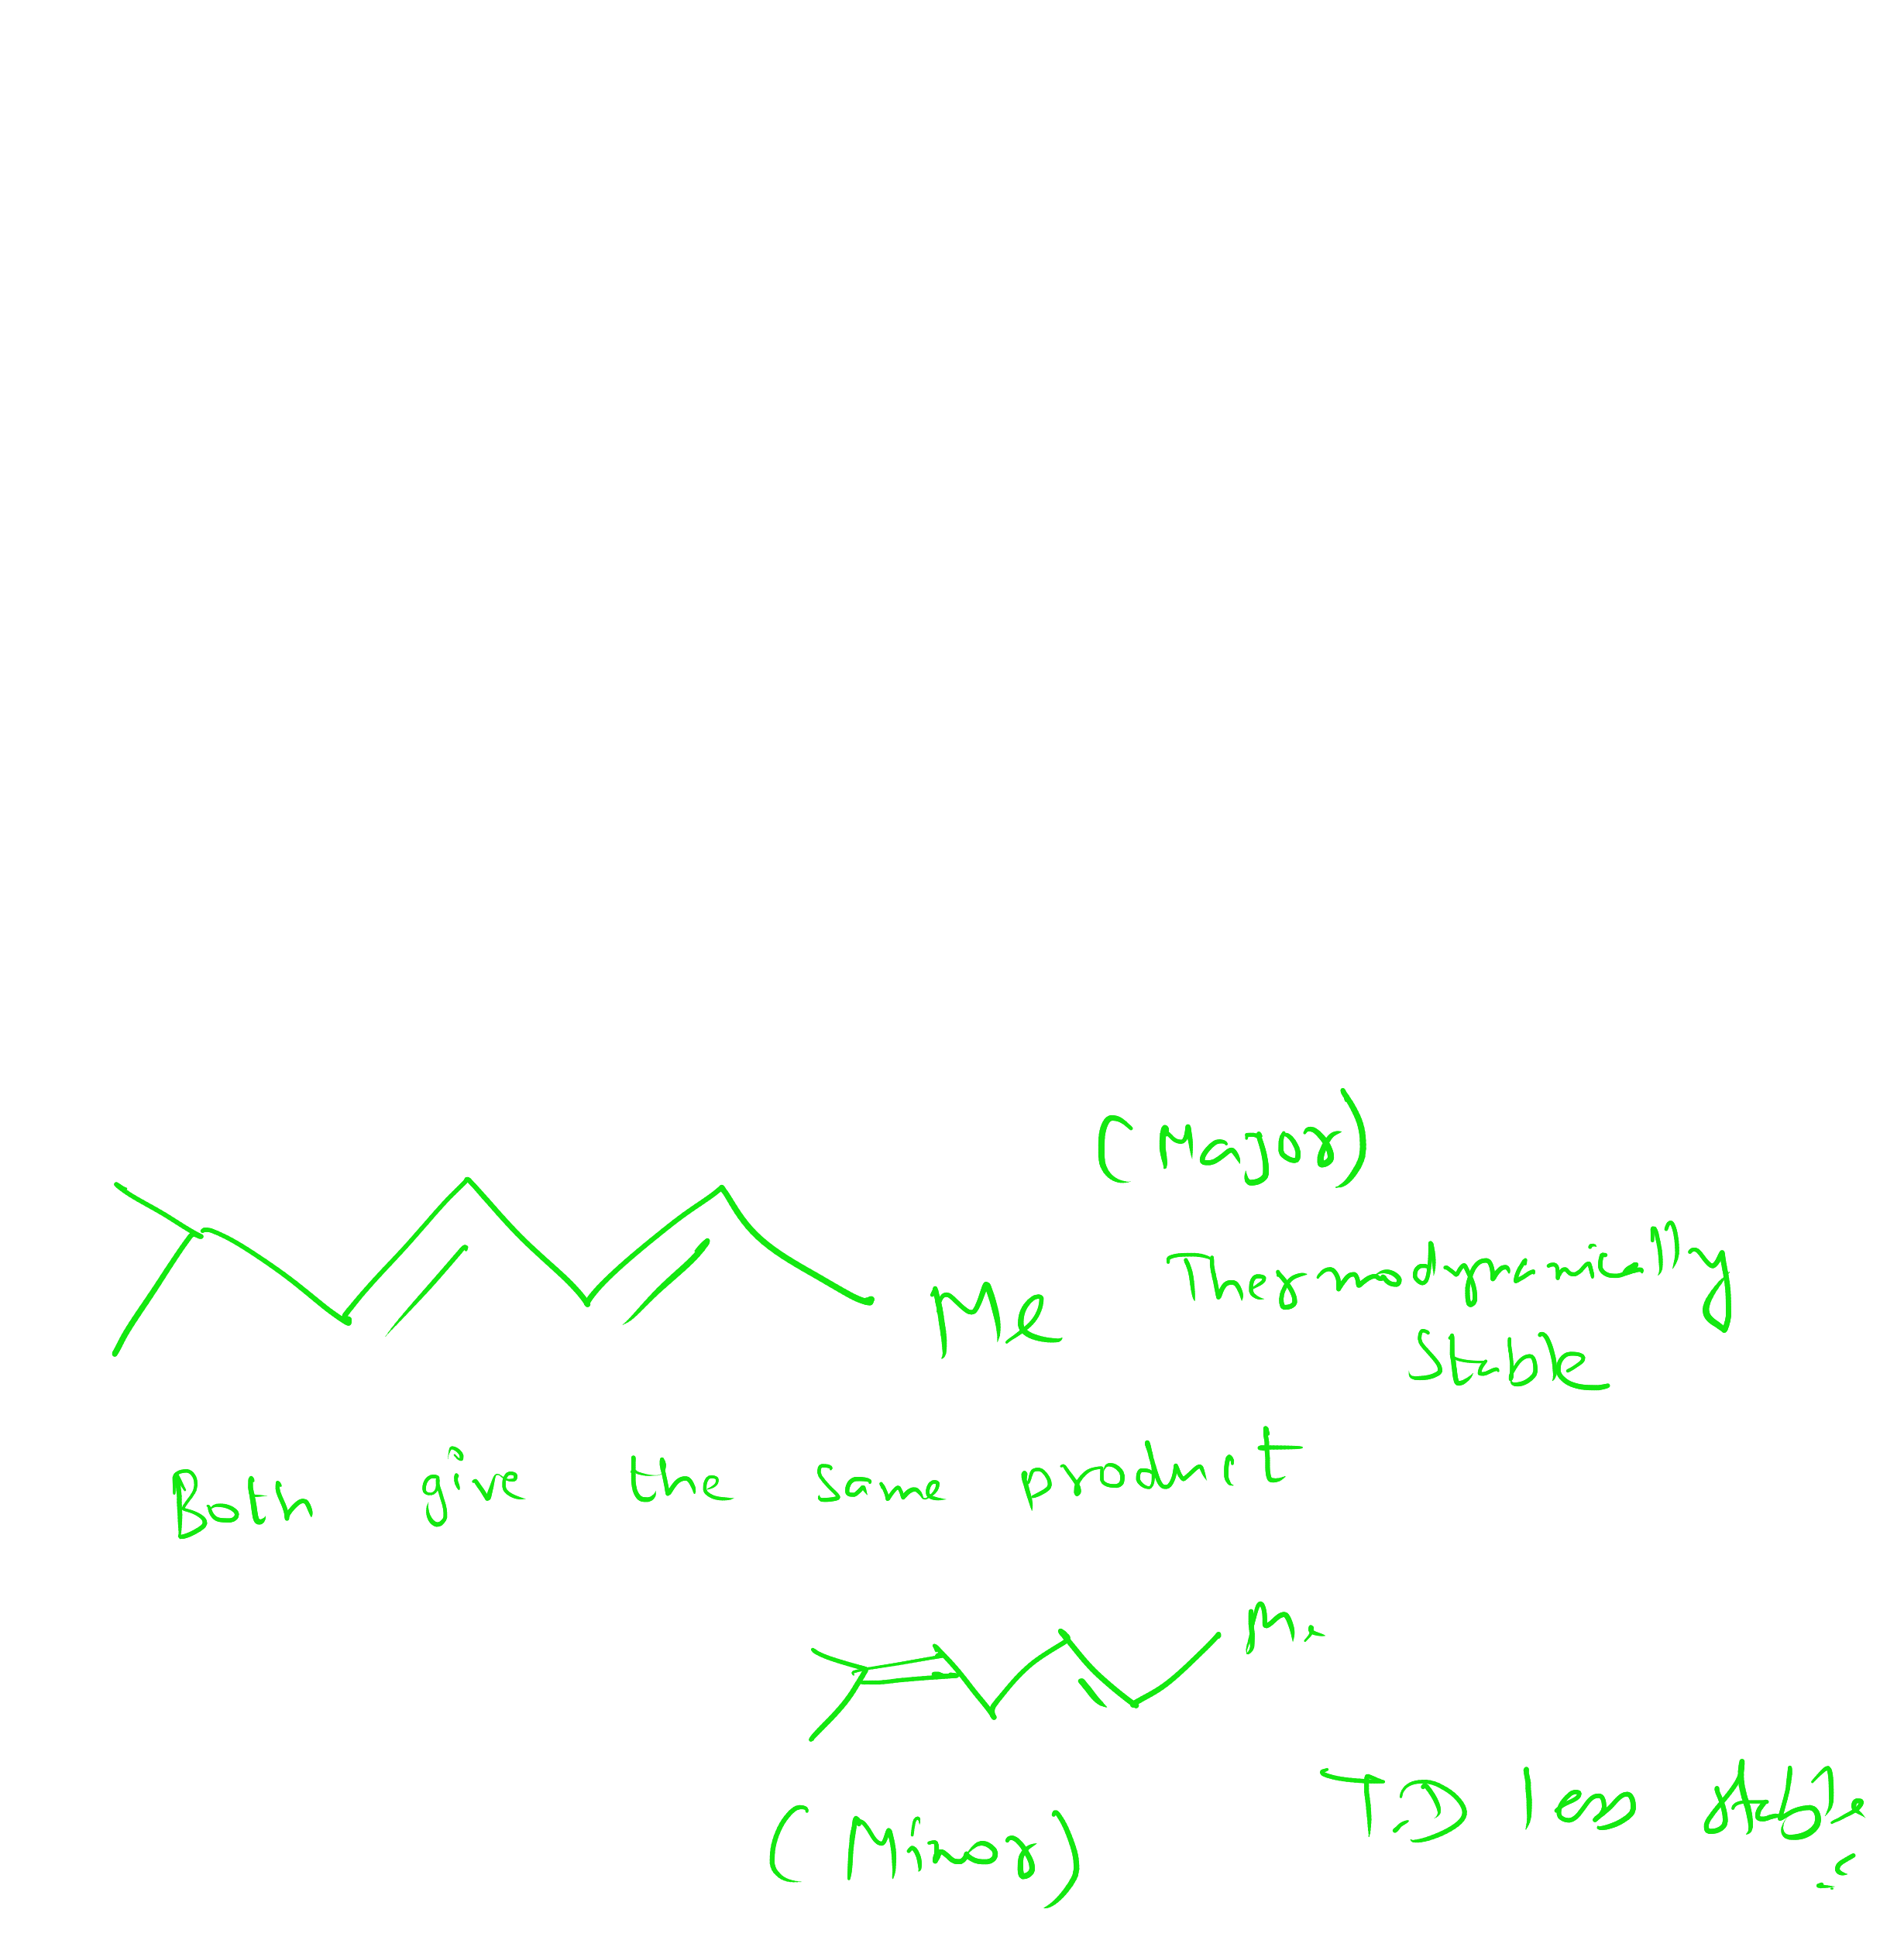 (Major)
Me
Thermodynamically
Stable
Both give the same product
Me
T.D less stable
(Minor)